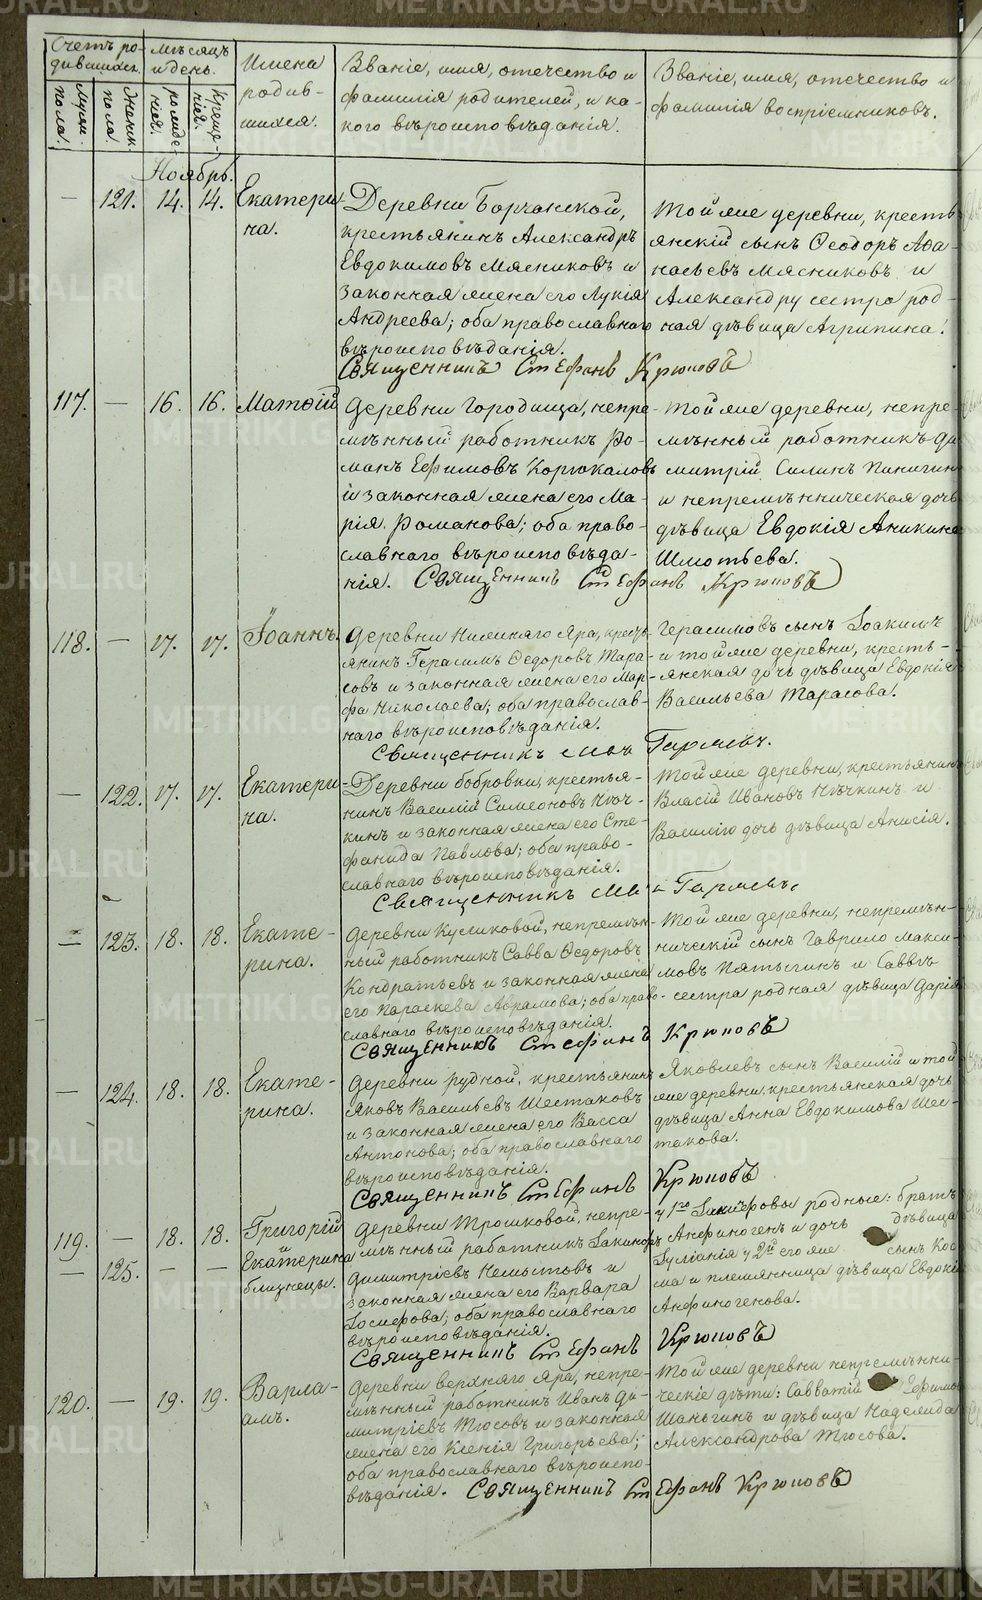 Счетъ ро-
дившихся.
Мужск.
пола.
Женск.
пола.
Мѣсяцъ
и день.
рожде-
нія.
Креще-
нія.
Имена
родив-
шихся.
Званіе, имя, отечество и
фамилія родителей, и ка-
кого вѣроисповѣданія.
Званіе, имя, отечество и
фамилія воспріемниковъ.
Ноябрь.
— 121. 14. 14.
Екатери-
на.
Деревни Борчанской,
крестьянинъ Александръ
Евдокимовъ Мясниковъ и
законная жена его Лукія
Андреева; оба православнаго
вѣроисповѣданія.
Той же деревни, кресть
янскій сынъ Ѳеодоръ Аѳа-
насьевъ Мясниковъ и
Александру сестра род-
ная дѣвица Агрипина.
Священникъ Стефанъ Крюковъ
117. — 16. 16.
Матѳій
Деревни Городища, непре-
мѣнный работникъ Ро-
манъ Ефимовъ Корюкаловъ
и законная жена его Ма-
рія Романова; оба право-
славнаго вѣроисповѣда-
нія.
Той же деревни, непре-
мѣнный работникъ Ди
митрій Силинъ Пинигин
и непремѣнническая дочь
дѣвица Евдокія Аникина
Шмотьева.
Священникъ Стефанъ Крюковъ
118. — 17. 17.
Іоаннъ.
Деревни Нижняго Яра, кресть-
янинъ Герасимъ Ѳедоровъ Тара-
совъ и законная жена его Мар-
фа Николаева; оба православ-
наго вѣроисповѣданія.
Герасимовъ сынъ Іоакимъ
и той же деревни, кресть-
янская дочь дѣвица Евдокія
Васильева Тарасова.
Священникъ
— 122. 17. 17.
Екатери-
на.
Деревни Бобровки, крестья-
нинъ Василій Симеоновъ Нѣч-
кинъ и законная жена его Сте-
фанида Павлова; оба право-
славнаго вѣроисповѣданія.
Той же деревни, крестьянин
Власій Ивановъ Нѣчкинъ и
Василію дочь дѣвица Анисія.
Священникъ
— 123. 18. 18.
Екате-
рина.
Деревни Куликовой, непремѣн-
ный работникъ Савва Ѳедоровъ
Кондратьевъ и законная жена
его Параскева Аврамова; оба право-
славнаго вѣроисповѣданія.
Той же деревни, непремѣн-
ническій сынъ Гаврило Макси-
мовъ Пятыгинъ и Саввѣ
сестра родная дѣвица Дарія
Священникъ Стефанъ Крюковъ
— 124. 18. 18.
Екате-
рина.
Деревни Рудной, крестьянинъ
Яковъ Васильевъ Шестаковъ
и законная жена его Васса
Антонова; оба православнаго
вѣроисповѣданія.
Яковлевъ сынъ Василій и той
же деревни, крестьянская дочь
дѣвица Анна Евдокимова Шес-
такова.
Священникъ Стефанъ Крюковъ
119. — 18. 18.
— 125. — —
Григорій
и
Екатерина
близнецы.
Деревни Трошковой, непре-
мѣнный работникъ Іакинѳъ
Димитріевъ
законная жена его Варвара
Іосифова; оба православнаго
вѣроисповѣданія.
у 1го родные: братъ
Анфиногенъ и дочь дѣвица
Іуліанія у 2й его же сынъ Кос
ма и племянница дѣвица Евдокія
Анфиногенова.
Священникъ Стефанъ Крюковъ
120. — 19. 19.
Варла-
амъ.
Деревни Верхняго Яра, непре-
мѣнный работникъ Иванъ Ди-
митріевъ Тюсовъ и законная
жена его Ксенія Григорьева;
оба православнаго вѣроиспо-
вѣданія.
Той же деревни непремѣнни-
ческіе дѣти: Савватій Ефимов
Шаньгинъ и дѣвица Надежда
Александрова Тюсова.
Священникъ Стефанъ Крюковъ
METRIKI.GASO-URAL.RU